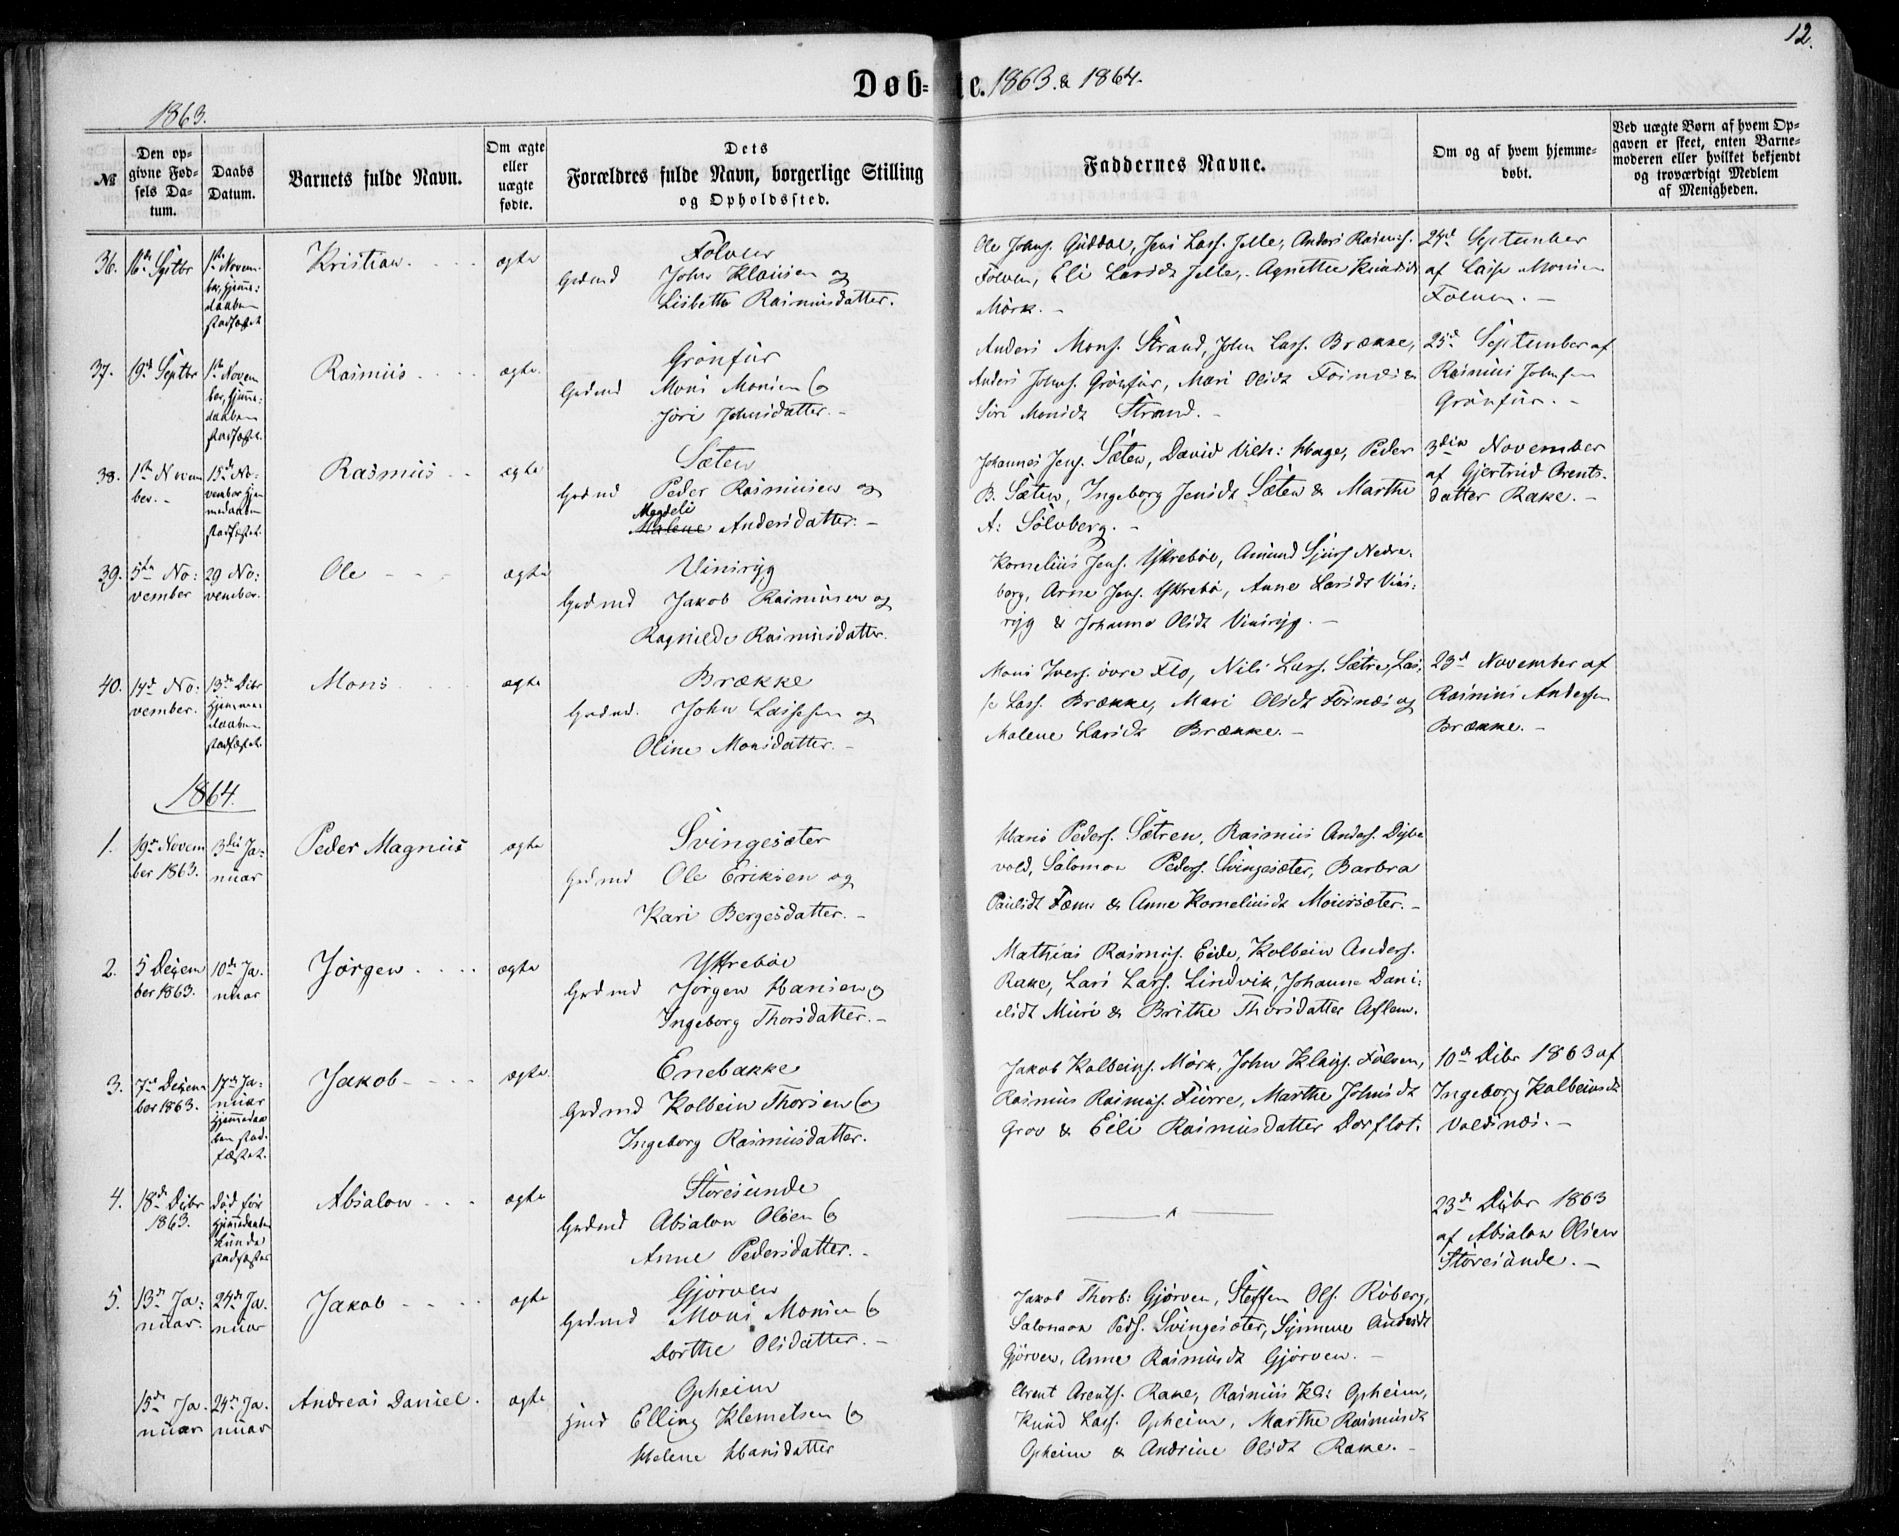 12.
Døbte. 1863. & 1864.
1863.
№
Den opgivne Fødsels Datum.
Daabs Datum.
Barnets fulde Navn.
Om ægte eller uægte fødte.
Dets Forældres fulde Navn, borgerlige Stilling og Opholdssted.
Faddernes Navne.
Om og af hvem hjemmedøbt.
Ved uægte Børn af hvem Opgaven er skeet, enten Barnemoderen eller hvilket bekjendt og troværdigt Medlem af Menigheden.
36. 16de Septbr 1ste Novembr, hjemmedaaben stadfæstet Kristian. ægte
Folven
Gudmd John Klausen og
Lisbethe Rasmusdatter.
Ole Johns. Guddal, Jens Lass. Jelle, Anders Rasmus.
Folven, Eli Larsdt Jelle, Agnethe Knudsdt
Mörk.
24de September
af Lasse Monsen
Folven.
37. 19de Septbr 1ste November, hjemmedaaben stadfæstet. Rasmus ægte
Grönfur
Gudmd Mons Monsen og
Jöri Johnsdatter.
Anders Mons. Strand, John Lass. Brække,
Anders Johns. Grönfur, Mari Olsdt Fosnæs &
Siri Monsdt Strand.
25de September af
Rasmus Johnsen
Grönfur.
38. 1ste November. 15de November hjemmedaaben stadfæstet. Rasmus ægte
Sæten
Gudmd Peder Rasmusen og
Magdeli
Malene Andersdatter.
Johannes Jens. Sæten, David Vilh: Hage, Peder
B. Sæten, Ingeborg Jensdt Sæten & Marthe
A: Sölvberg.
3die November
af Gjertrud Arents-
datter Rake.
39. 5te November 29 November. Ole ægte
Vinsryg
Gudmd Jakob Rasmusen og
Ragnilde Rasmusdatter.
Kornelius Jens. Yttrebøe, Amund Sjurs. Nedre-
borg, Arne Jens. Yttrebö, Anne Larsdt Vins-
ryg & Johanne Olsdt Vinsryg.
40. 14de November. 13de Dcbr hjemmedaaben stadfæstet. Mons ægte
Brække
Gudmd. John Lassesen og
Oline Monsdatter.
Mons Ivers. övre Flo, Nils Lass. Sætre, Las-
se Lass. Brække, Mari Olsdt Fosnæs og
Malene Larsdt Brække.
23de November af
Rasmus Andersen
Brække.
1864.
1. 19de November 1863. 3die Januar Peder Magnus ægte
Svingesæter
Gudmd Ole Eriksen og
Kari Bergesdatter.
Hans Peders. Sætren, Rasmus Anders. Dybe
vold, Salomon Peders. Svingesæter, Barbra
Paulsdt Fæme & Anne Korneliusdt Mounsæter.
2. 5 Dezember 1863. 10de Januar Jørgen ægte
Yttrebøe
Gudmd Jørgen Hansen og
Ingeborg Thorsdatter.
Mathias Rasmus. Eide, Kolbein Anders.
Rake, Lars Lars. Lindvik, Johanne Dani-
elsdt Muri & Brithe Thorsdatter Aflem.
3. 7de Dezember 1863. 17de Januar hjemmedaaben stadfæstet. Jakob ægte
Enebakke
Gudmd Kolbein Thorsen og
Ingeborg Rasmusdatter.
Jakob Kolbeins. Mörk, John Klaus. Folven,
Rasmus Rasmus. Furre, Marthe Johnsdt
Grov & Eili Rasmusdatter Dorflot.
10de Dcbr 1863 af
Ingeborg Kolbeinsdt
Voldsnæs.
4. 18de Dcbr 1863. död för hjemmedaaben kunde stadfæstes Absalon ægte
Storesunde
Gudmd Absalon Olsen og
Anne Pedersdatter.
23de Dcbr 1863
af Absalon Olsen
Storesunde.
5. 13de Januar. 24de Januar Jakob ægte
Gjörven
Gudmd Mons Monsen og
Dorthe Olsdatter.
Jakob Thorb: Gjörven, Steffen Ols. Röberg,
Salomon Peds. Svingesæter, Synneve Andersdt
Gjörven, Anne Rasmusdt Gjörven.
15de Januar 24de Januar Andreas Daniel. ægte
Opheim
Hmd Elling Klemetsen og
Helene Hansdatter
Arent Arents. Rake, Rasmus Kl: Opheim,
Knud Lass. Opheim, Marthe Rasmusdt
Opheim & Andrine Olsdt Rake.